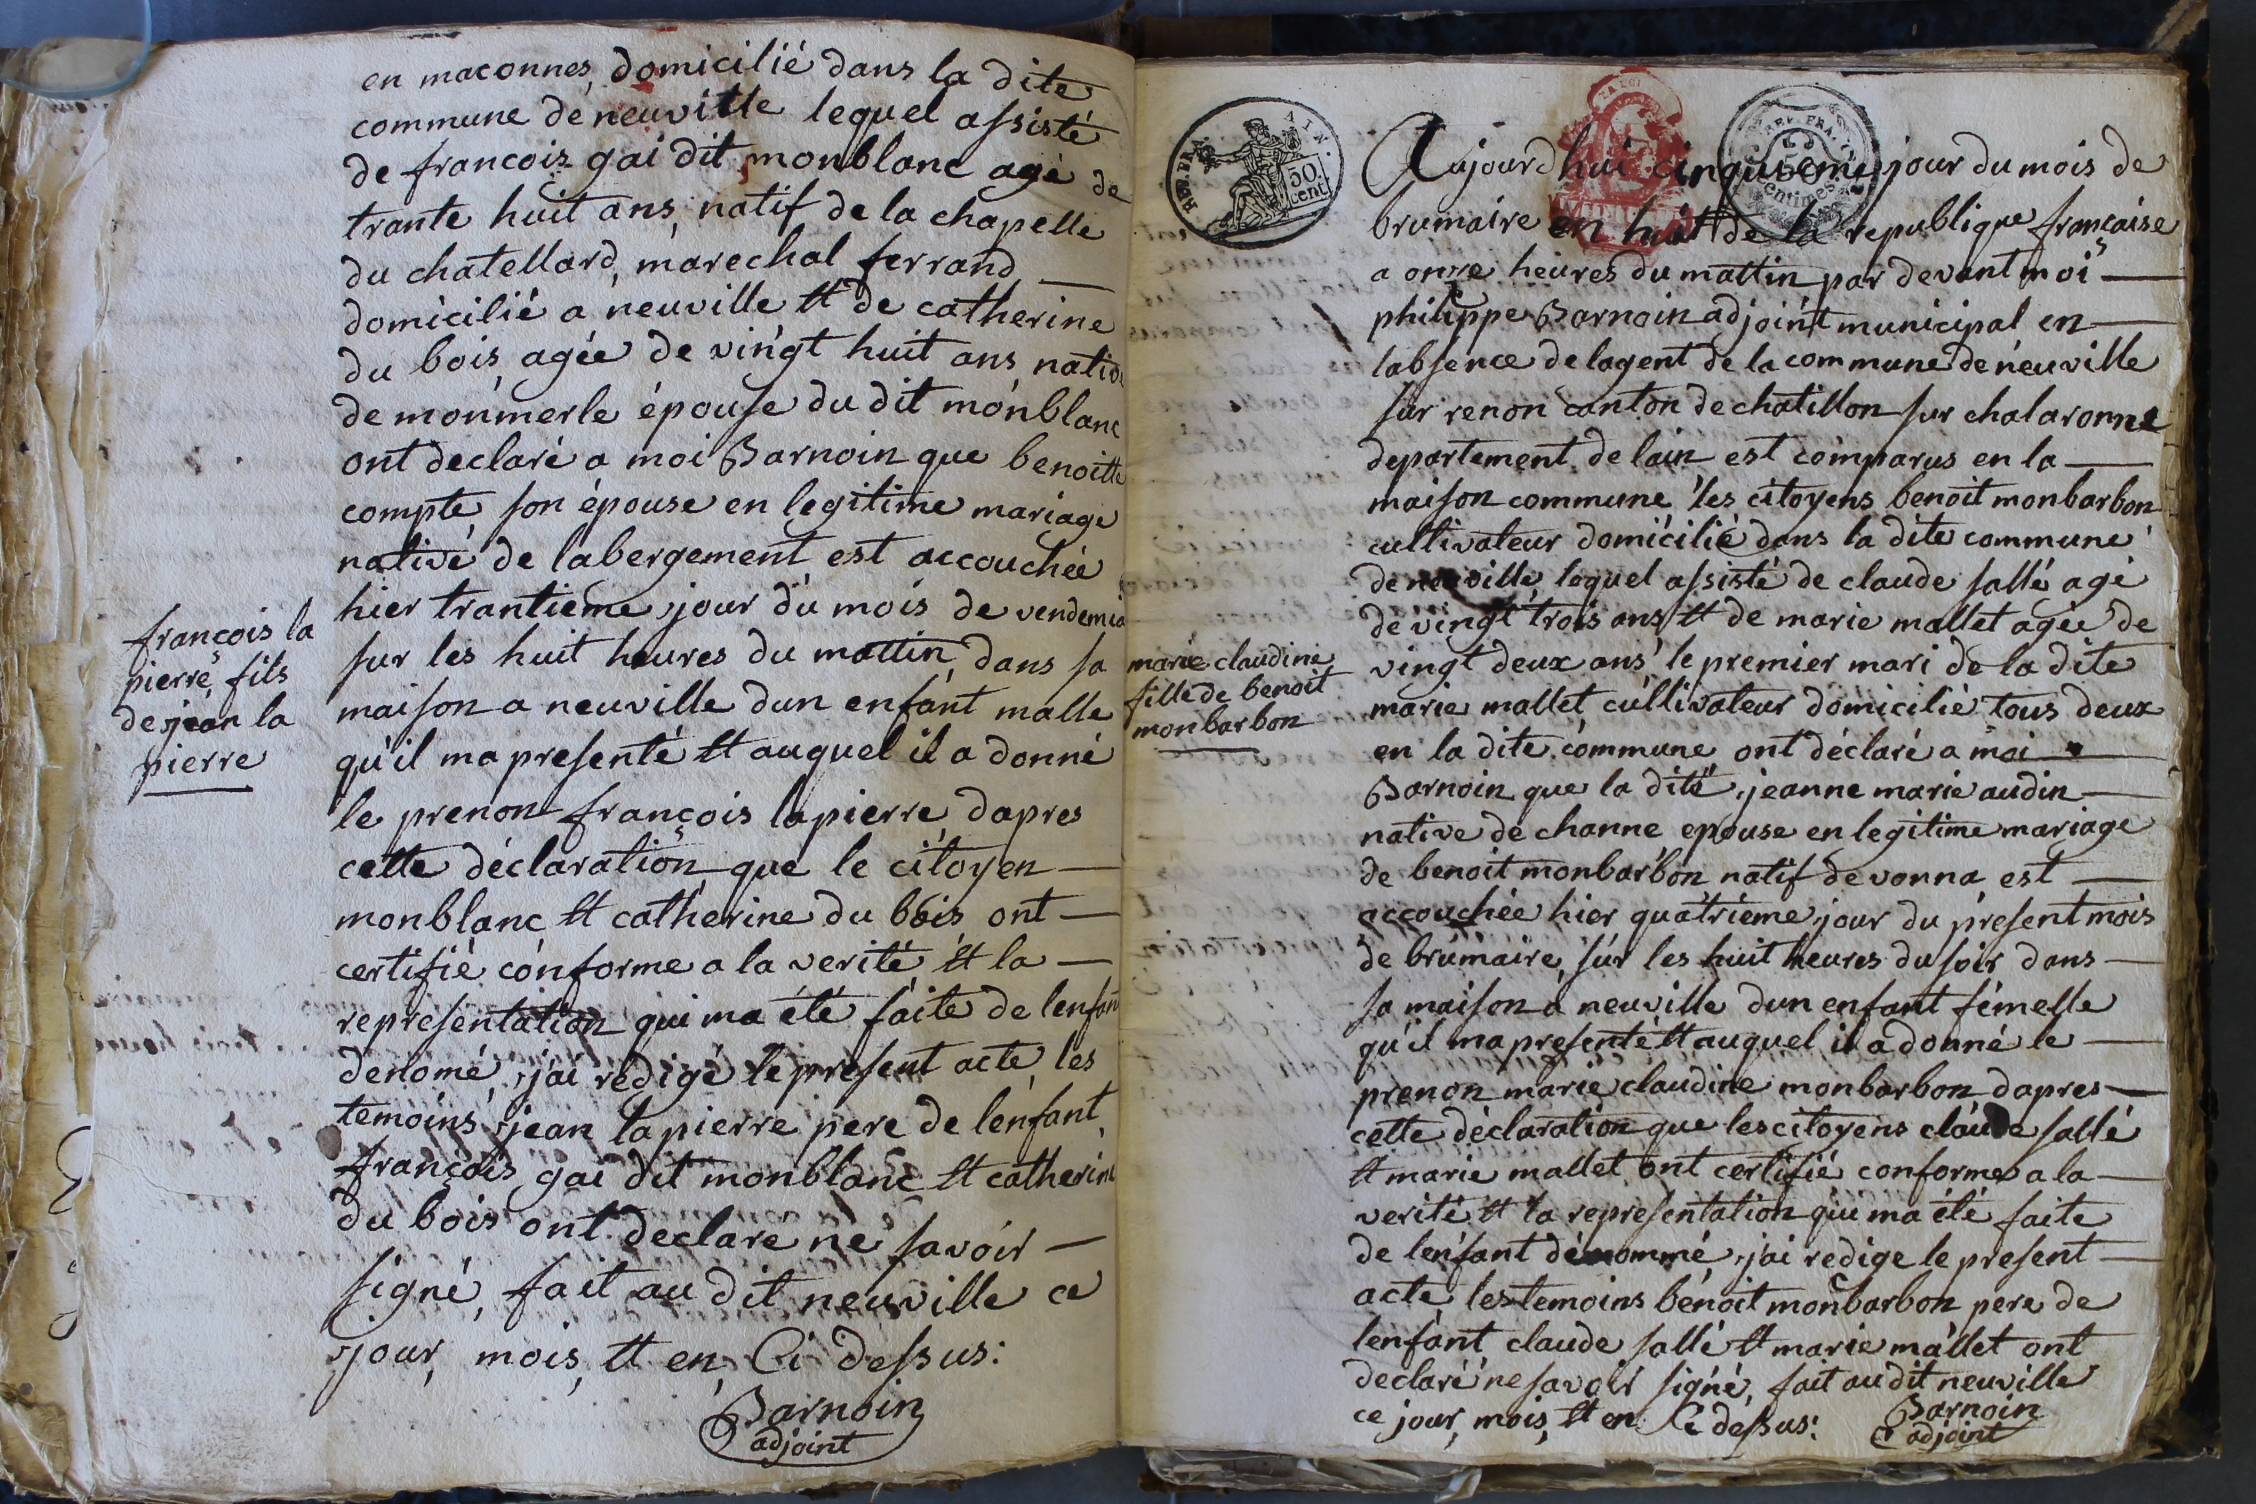 en maconnes, domicilié dans la dite
commune de neuville lequel assisté
de francois gai dit monblanc agé de
trante huit ans natif de la chapelle
du chatellard, marechal ferrand
domicilié a neuville et de catherine
du bois agée de vingt huit ans native
de monmerle épouse du dit monblanc
ont declaré a moi Barnoin que benoitte
compte son épouse en legitime mariage
native de labergement est accouchée
hier trantieme jour du mois de vendemia
sur les huit heures du mattin dans sa
maison a neuville dun enfant malle
qu'il ma presenté et auquel il a donné
le prenon françois lapierre dapres
cette déclaration que le citoyen
monblanc et catherine du bois ont
certifié conforme a la verité et la
representation qui ma été faite de lenfant
denomé, jai redigé le present acte les
temoins jean lapierre pere de lenfant
françois gai dit monblanc et catherine
du bois ont declare ne savoir
signé, fait au dit neuville ce
jour, mois, et en Ci dessus:
Barnoin
adjoint
françois la
pierre fils
de jean la
pierre
REP. FRA. AIN.
50.
cent
REP. FRA
50
centimes
Aujourdhui cinquieme jour du mois de
brumaire en huit de la republique française
a onze heures du mattin par devant moi
philippe Barnoin adjoint municipal en
labsence de lagent de la commune de neuville
sur renon canton de chatillon sur chalaronne
departement de lain est comparus en la
maison commune les citoyens benoit monbarbon
cultivateur domicilié dans la dite commune
de neuville lequel assisté de claude sallé agé
de vingt trois ans et de marie mallet agée de
vingt deux ans le premier mari de la dite
marie mallet cultivateur domicilié tous deux
en la dite commune ont déclaré a moi
Barnoin que la dite jeanne marie audin
native de channe epouse en legitime mariage
de benoit monbarbon natif de vonna est
accouchée hier quatrieme jour du present mois
de brumaire sur les huit heures du soir dans
sa maison a neuville dun enfant femelle
qu'il ma presenté et auquel il a donné le
prenon marie claudine monbarbon dapres
cette déclaration que les citoyens claude sallé
et marie mallet ont certifié conforme a la
verité et la representation qui ma été faite
de lenfant dénommé, jai redige le present
acte les temoins benoit monbarbon pere de
lenfant claude sallé et marie mallet ont
declaré ne savoir signé, fait au dit neuville
ce jour, mois, et en Ci dessus:
Barnoin
adjoint
marie claudine
fille de benoit
monbarbon